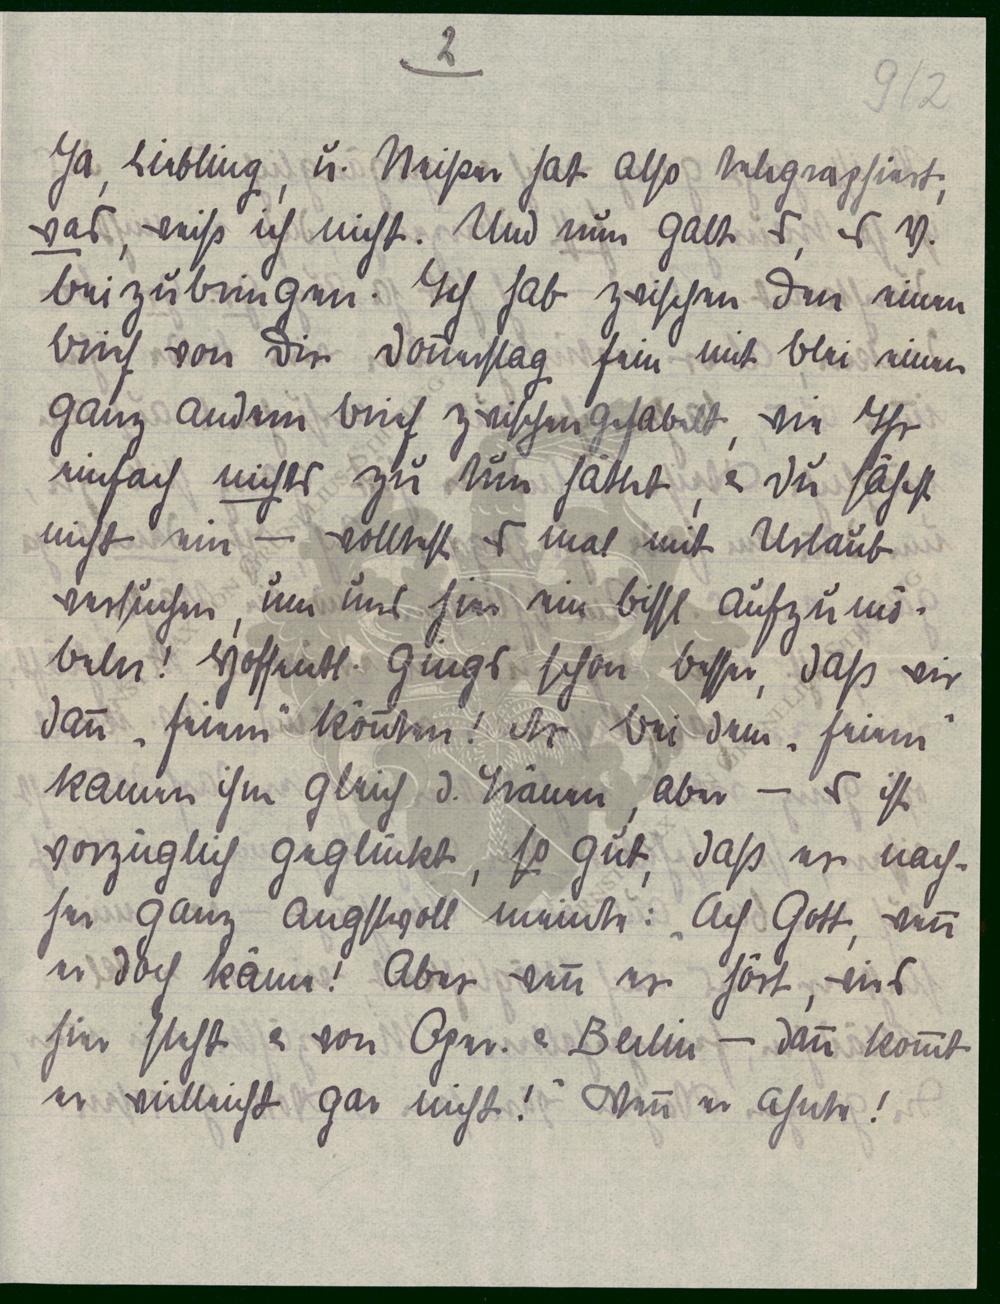 2
9/2
Ja, Liebling, u. Meißner hat also telegraphiert,
was, weiß ich nicht. Und nun galt es, es V.
beizubringen. Ich hab zwischen den einen
brief von Dir Donnerstag fein mit blei einen
ganz andern brief zwischengehabelt, wie Ihr
einfach nichts zu tun hättet, & du sähest
nicht ein — wolltest es mal mit Urlaub
versuchen, um uns hier ein bissl aufzumö-
beln! Hoffentl. gings schon besser, daß wir
dann „feiern" könnten! Als bei dem „feiern"
kamen ihm gleich d. Tränen, aber — es ist
vorzüglich geglückt, so gut, daß er nach-
her ganz angstvoll meinte: „Ach Gott, wenn
er doch käme! Aber wenn er hört, wies
hier steht & von Oper. & Berlin — dann kommt
er vielleicht gar nicht!" Wenn er ahnte!